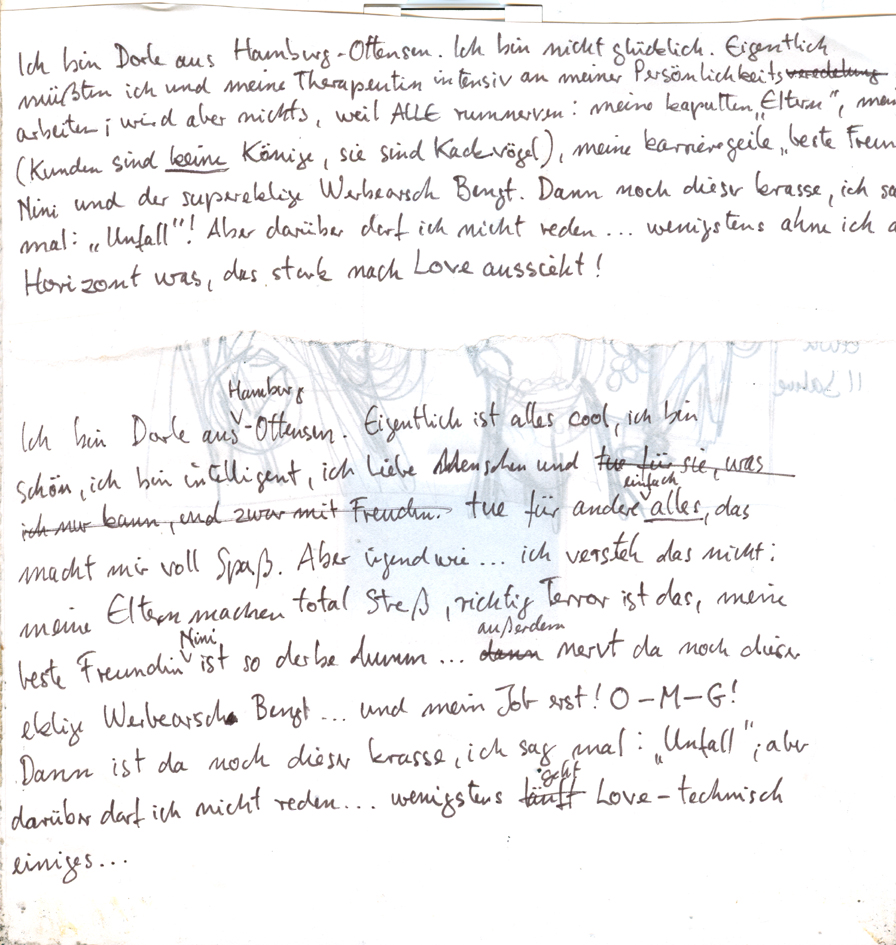 Ich bin Dorle aus Hamburg-Ottensen. Ich bin nicht glücklich. Eigentlich
müßten ich und meine Therapeutin intensiv an meiner Persönlichkeitsveredelung
arbeiten; wird aber nichts, weil ALLE rumnerven: meine kaputten „Eltern“, mei
(Kunden sind keine Könige, sie sind Kackvögel), meine karrieregeile „beste Freun
Nini und der supereklige Werbearsch Bengt. Dann noch dieser krasse, ich sa
mal: „Unfall“! Aber darüber darf ich nicht reden ... wenigstens ahne ich a
Horizont was, das stark nach Love aussieht!
Hamburg
Ich bin Dorle aus -Ottensen. Eigentlich ist alles cool, ich bin
schön, ich bin intelligent, ich liebe Menschen und tue für sie, was
einfach
ich nur kann, und zwar mit Freuden. tue für andere alles, das
macht mir voll Spaß. Aber irgendwie ... ich versteh das nicht:
meine Eltern machen total Streß, richtig Terror ist das, meine
Nini außerdem
beste Freundin ist so derbe dumm ... dann nervt da noch dieser
eklige Werbearsch Bengt ... und mein Job erst! O-M-G!
Dann ist da noch dieser krasse, ich sag mal: „Unfall“; aber
geht
darüber darf ich nicht reden... wenigstens läuft Love-technisch
einiges...